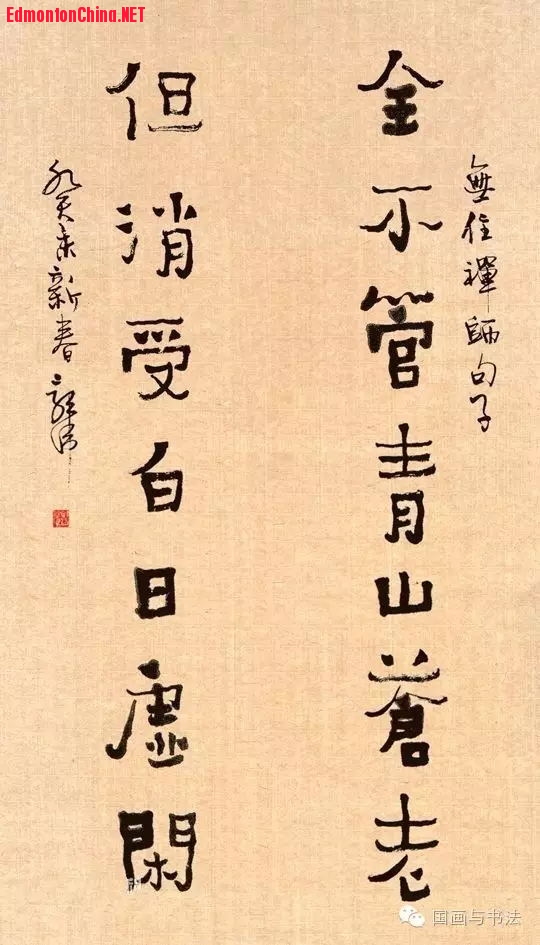 EdmontonChina.NET
無住禪師句子
全不管青山蒼老
但消受白日虛閑
癸未新春
国画与书法